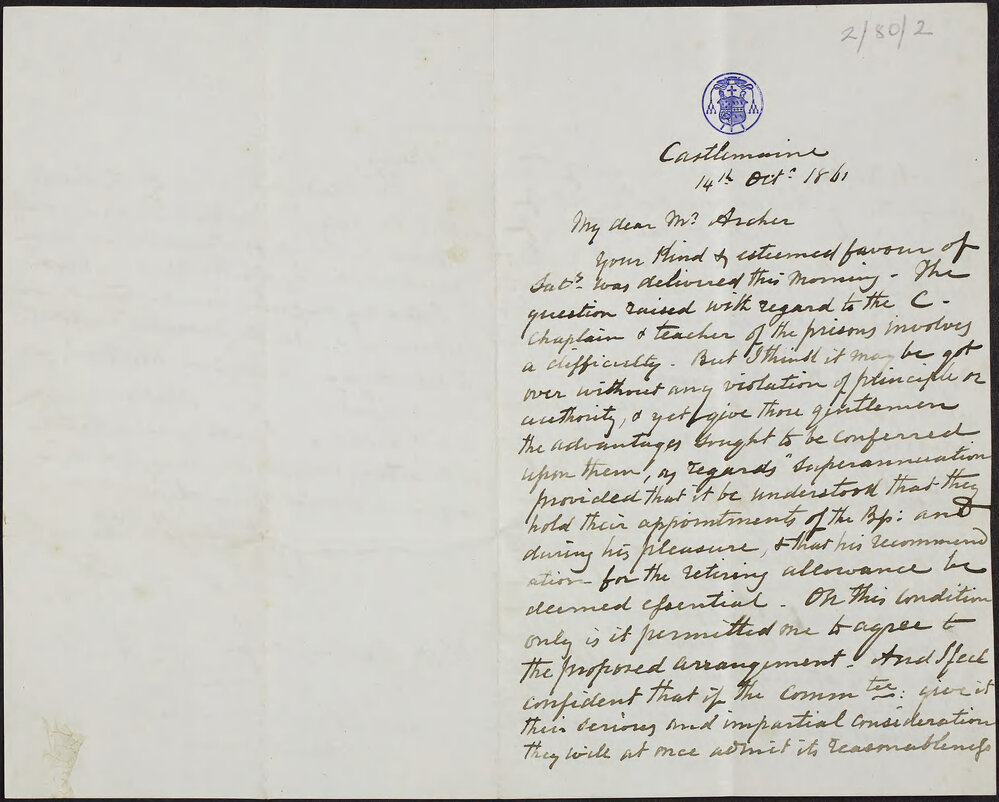 2/80/2
Castlemaine
14th Octr 1861
My dear Mr Archer
Your Kind & esteemed favour of
Saty was delivered this Morning - The
question raised with regard to the C -
Chaplain & teacher of the prisons involves
a difficulty - But I think it may be got
over without any violation of principle or
authority, & yet give those gentlemen
the advantages sought to be conferred
upon them, as regards "Superannuation
provided that it be understood that they
hold their appointments of the Bp: and
during his pleasure, & that his recommend
ation for the retiring allowance be
deemed essential - On this condition
only is it permitted me to agree to
the proposed arrangement - And I feel
confident that if the Commtee: give it
their serious and impartial consideration
they will at once admit its reasonableness